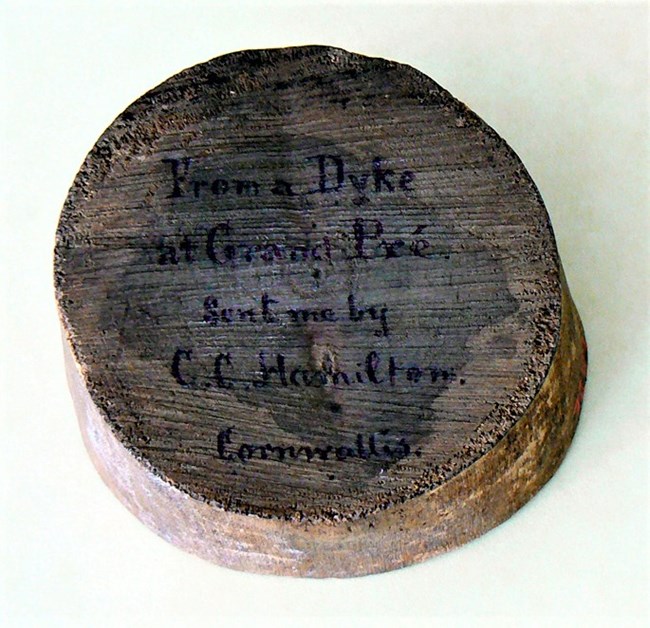 From a Dyke
at Grand Pré.
sent me by
C.C. Hamilton.
Cornwallis.